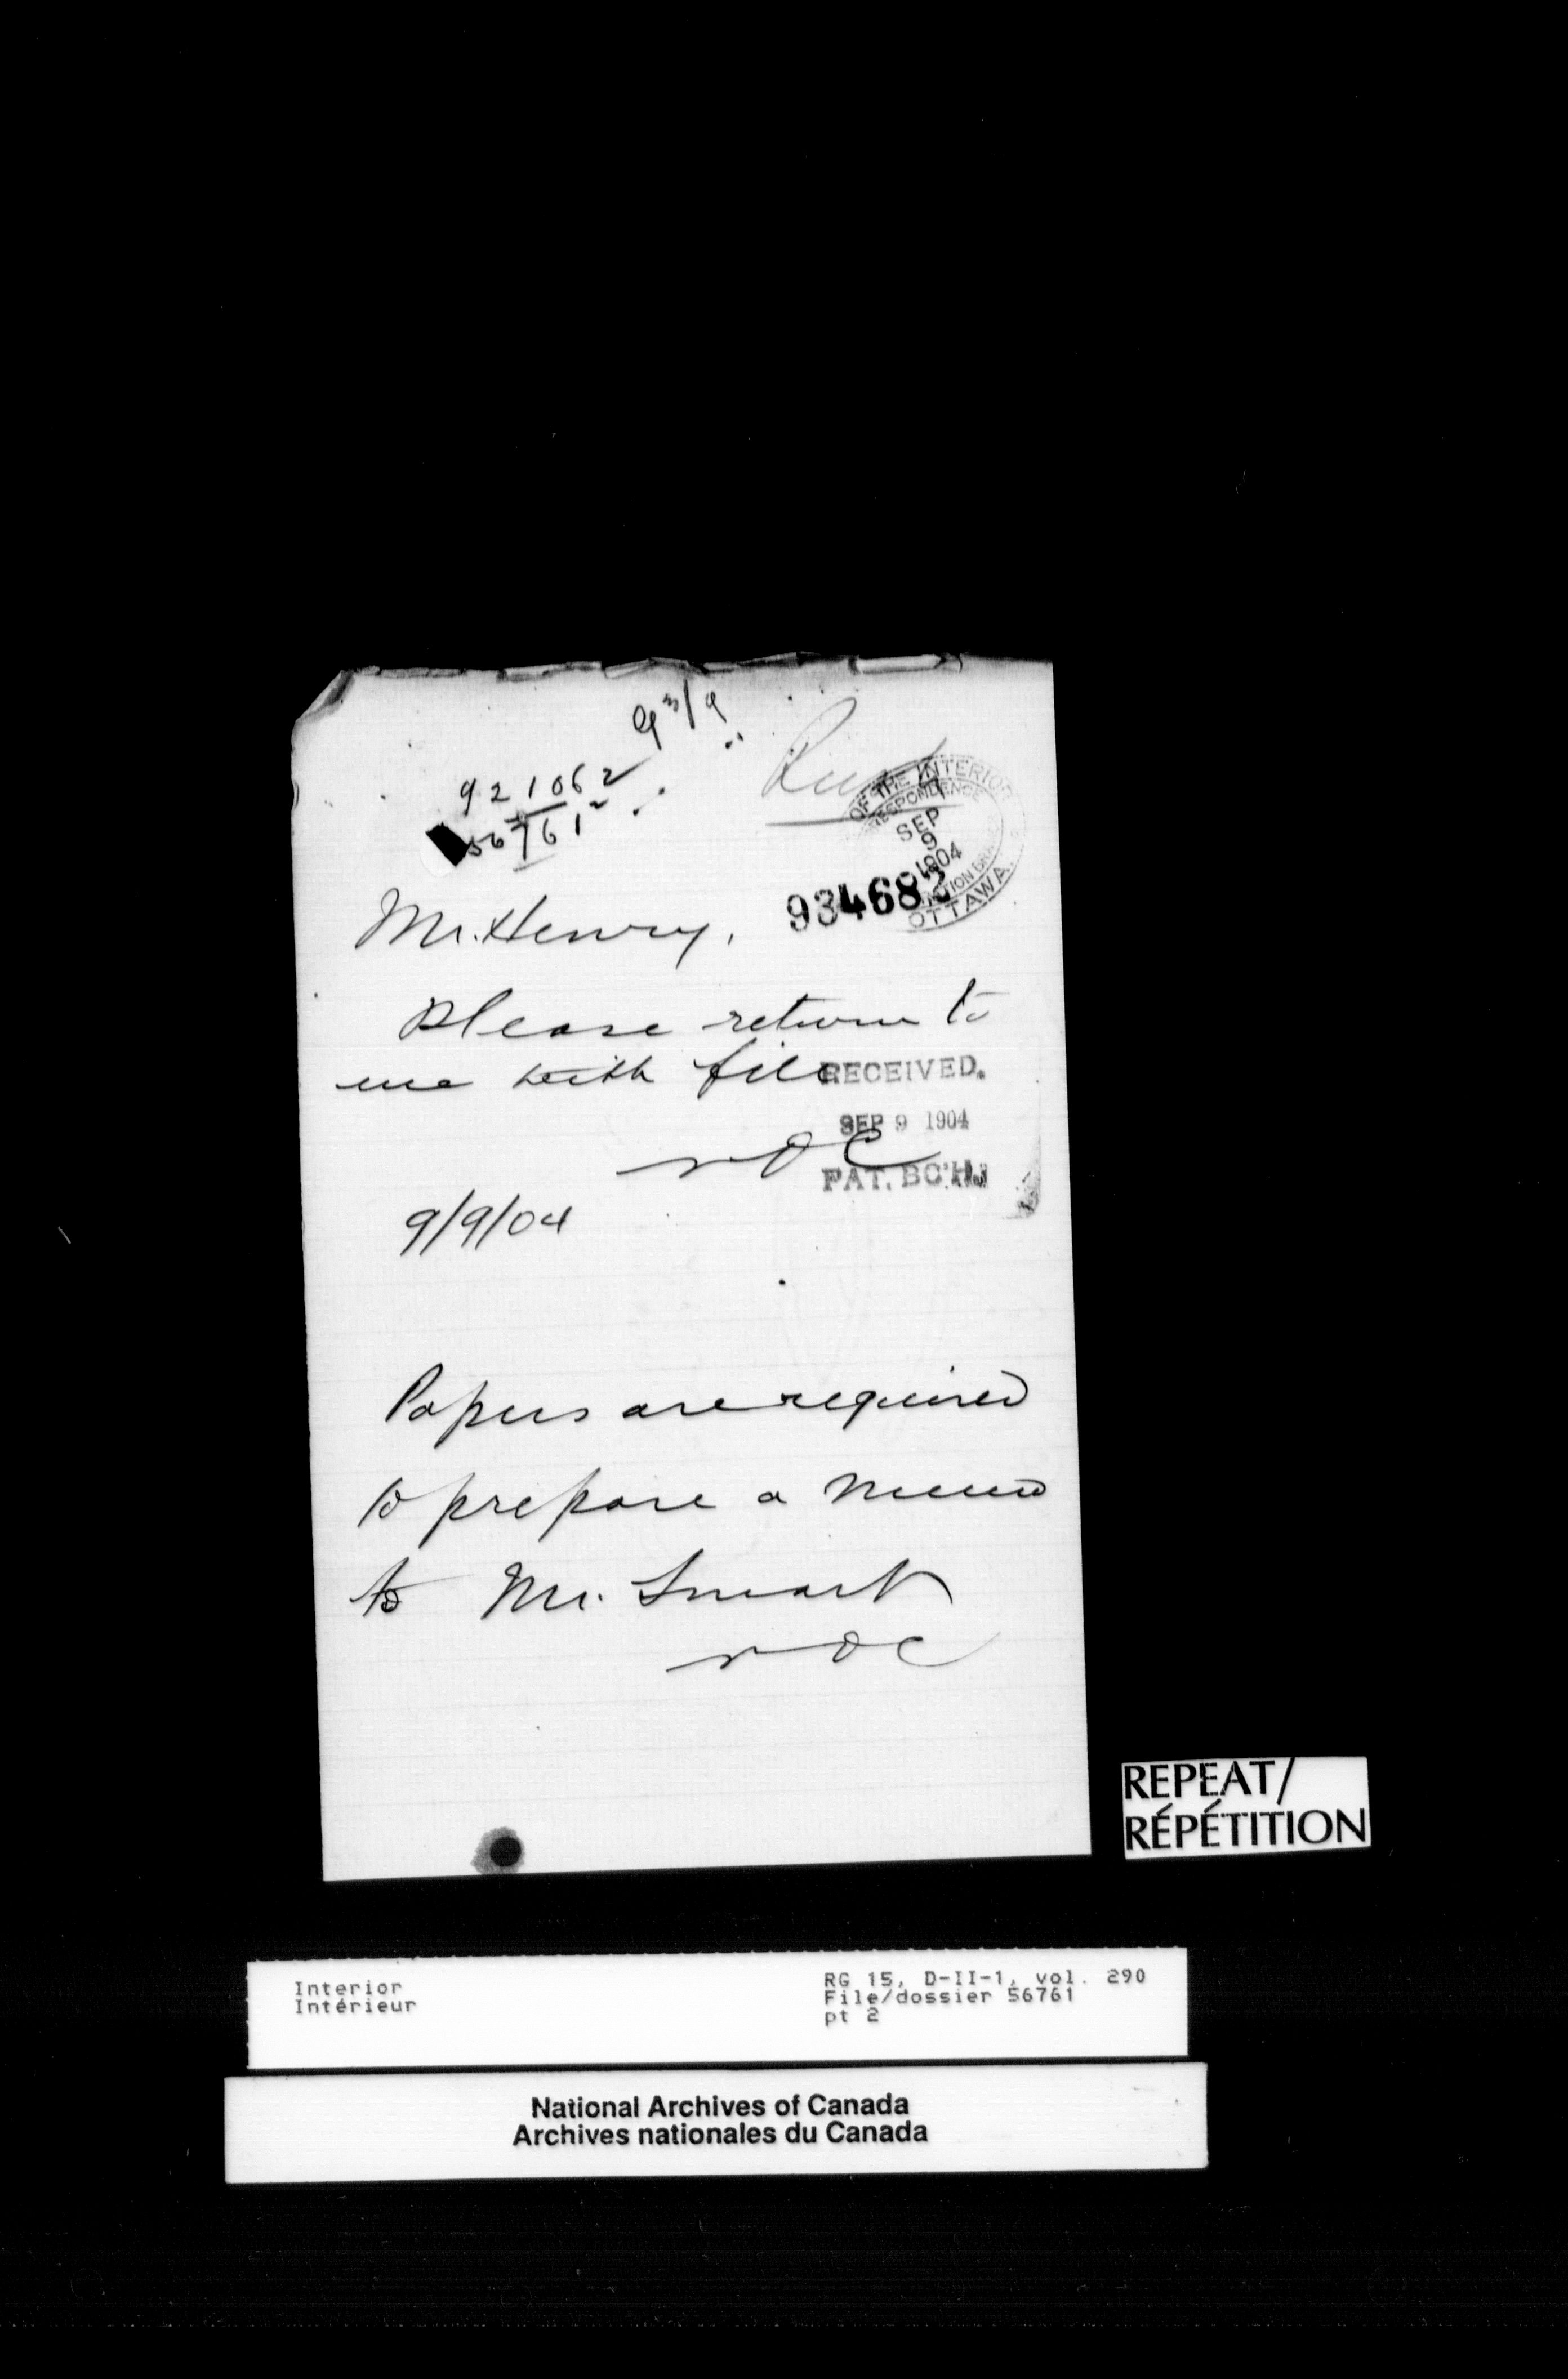 921062
56761
OF THE INTERIOR
CORRESPONDENCE
SEP
9
1904
OTTAWA.
Mr. Henry,
Please return to
me with file
RECEIVED.
SEP 9 1904
PAT. BCH.
9/9/04
Papers are required
to prepare a memo
to Mr. Smart
REPEAT/
RÉPÉTITION
Interior
Intérieur
RG 15, D-II-1, vol. 290
File/dossier 56761
pt 2
National Archives of Canada
Archives nationales du Canada